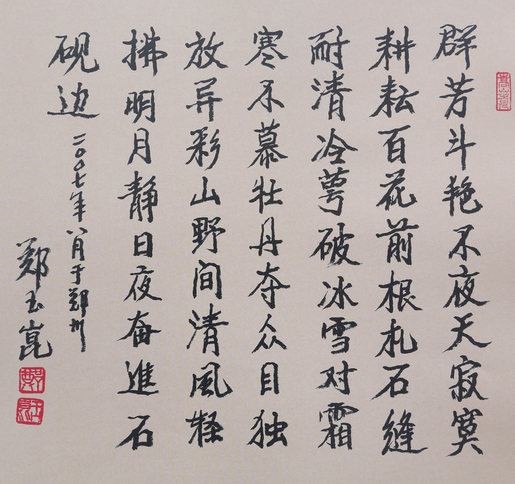 群芳斗艳不夜天寂寞
耕耘百花前根扎石缝
耐清冷萼破冰雪对霜
寒不慕牡丹夺众目独
放异彩山野间清风轻
拂明月静日夜奋进石
砚边
二〇〇七年八月于郑州
郑玉崑